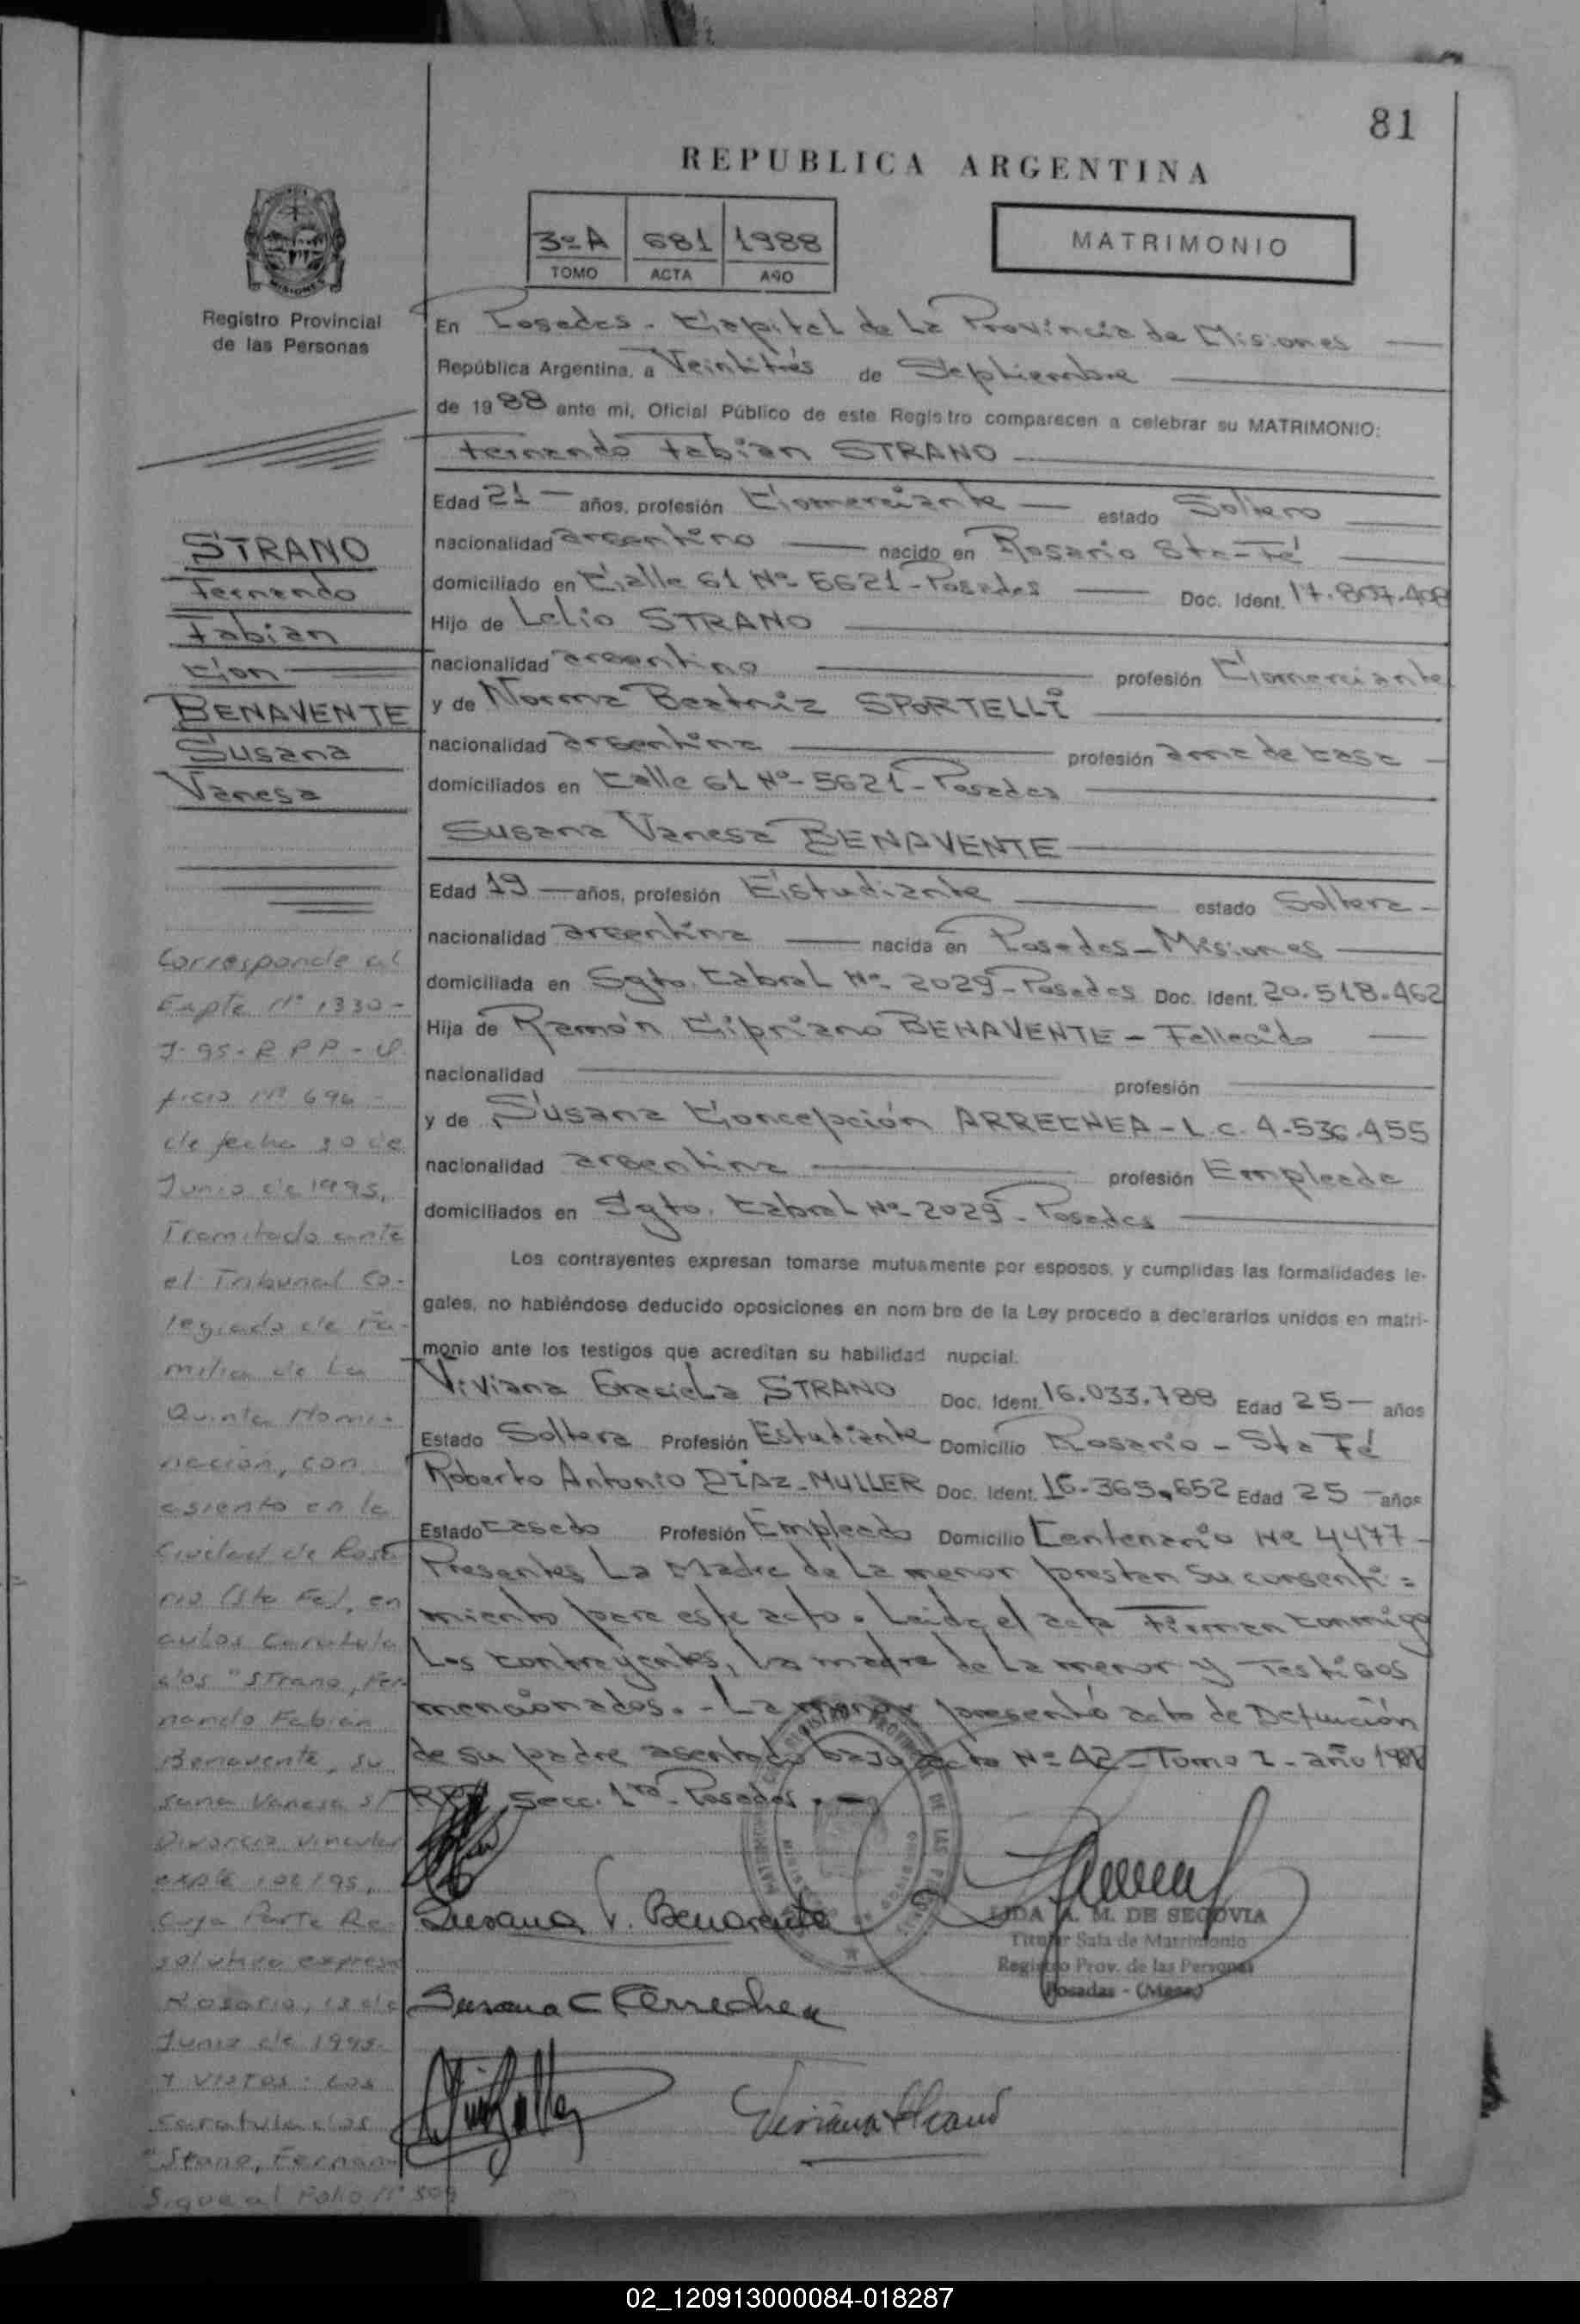 81
REPUBLICA ARGENTINA
3º A 681 1988
TOMO ACTA AÑO
MATRIMONIO
Registro Provincial
de las Personas
En Posadas - Capital de La Provincia de Misiones
República Argentina, a Veintitrés de Septiembre
de 1988 ante mi, Oficial Público de este Registro comparecen a celebrar su MATRIMONIO:
Fernando Fabian STRANO
Edad 21 años, profesión Comerciante estado Soltero
nacionalidad argentino nacido en Rosario Sta-Fé
domiciliado en Calle 61 Nº 5621 - Posadas Doc. Ident. 17.807.408
Hijo de Lelio STRANO
nacionalidad argentino profesión Comerciante
y de Norma Beatriz SPORTELLI
nacionalidad argentina profesión ama de casa
domiciliados en Calle 61 Nº 5621 - Posadas
Susana Vanesa BENAVENTE
Edad 19 años, profesión Estudiante estado Soltera
nacionalidad argentina nacida en Posadas - Misiones
domiciliada en Sgto. Cabral Nº 2029 - Posadas Doc. Ident. 20.518.462
Hija de Ramón Cipriano BENAVENTE - Fallecido
nacionalidad profesión
y de Susana Concepción ARRECHEA - L.C. 4.536.455
nacionalidad argentina profesión Empleada
domiciliados en Sgto. Cabral Nº 2029 - Posadas
Los contrayentes expresan tomarse mutuamente por esposos, y cumplidas las formalidades le-
gales, no habiéndose deducido oposiciones en nombre de la Ley procedo a declararlos unidos en matri-
monio ante los testigos que acreditan su habilidad nupcial.
Viviana Graciela STRANO Doc. Ident. 16.033.788 Edad 25 años
Estado Soltera Profesión Estudiante Domicilio Rosario - Sta Fé
Roberto Antonio DIAZ-MULLER Doc. Ident. 16.365.652 Edad 25 años
Estado casado Profesión Empleado Domicilio Centenario Nº 4477
Presentes La Madre de La menor prestan su consenti=
miento para este acto. Leida el acta Firman conmigo
Los contrayentes, la madre de La menor y Testigos
mencionados. - La menor presentó acta de Defunción
de su padre asentado bajo acta Nº 42 - Tomo I - año
Secc. 1ra - Posadas.
Susana V. Benavente
LIDA A. M. DE SEGOVIA
Titular Sala de Matrimonio
Registro Prov. de las Personas
Posadas - (Mnes)
Susana C Arrechea
Viviana Strano
STRANO
Fernando
Fabian
con
BENAVENTE
Susana
Vanesa
Corresponde al
Expte Nº 1330-
J-95-RPP-O
ficio Nº 696 -
de fecha 30 de
Junio de 1995,
Tramitado ante
el Tribunal Co-
legiado de Fa-
milia de La
Quinta Nomi-
nación, con
asiento en la
Ciudad de Rosa
rio (Sta Fe), en
autos caratula
dos "Strano, Fer-
nando Fabian
Benavente, Su
sana Vanesa s/
Divorcio vincular
expte 102/95,
cuya Parte Re
solutiva expresa
Rosario, 13 de
Junio de 1995.
Y VISTOS: Los
caratulados
"Strano, Fernan-
Sigue al Folio Nº
02_120913000084-018287